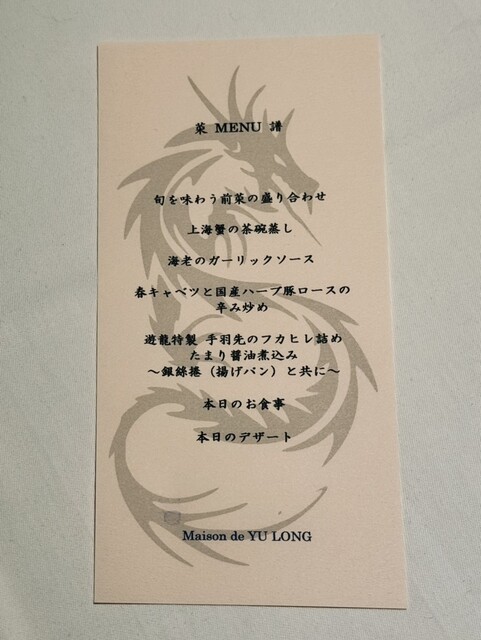 菜 MENU 譜
旬を味わう前菜の盛り合わせ
上海蟹の茶碗蒸し
海老のガーリックソース
春キャベツと国産ハーブ豚ロースの
辛み炒め
遊龍特製 手羽先のフカヒレ詰め
たまり醤油煮込み
～銀絲捲（揚げパン）と共に～
本日のお食事
本日のデザート
Maison de YU LONG